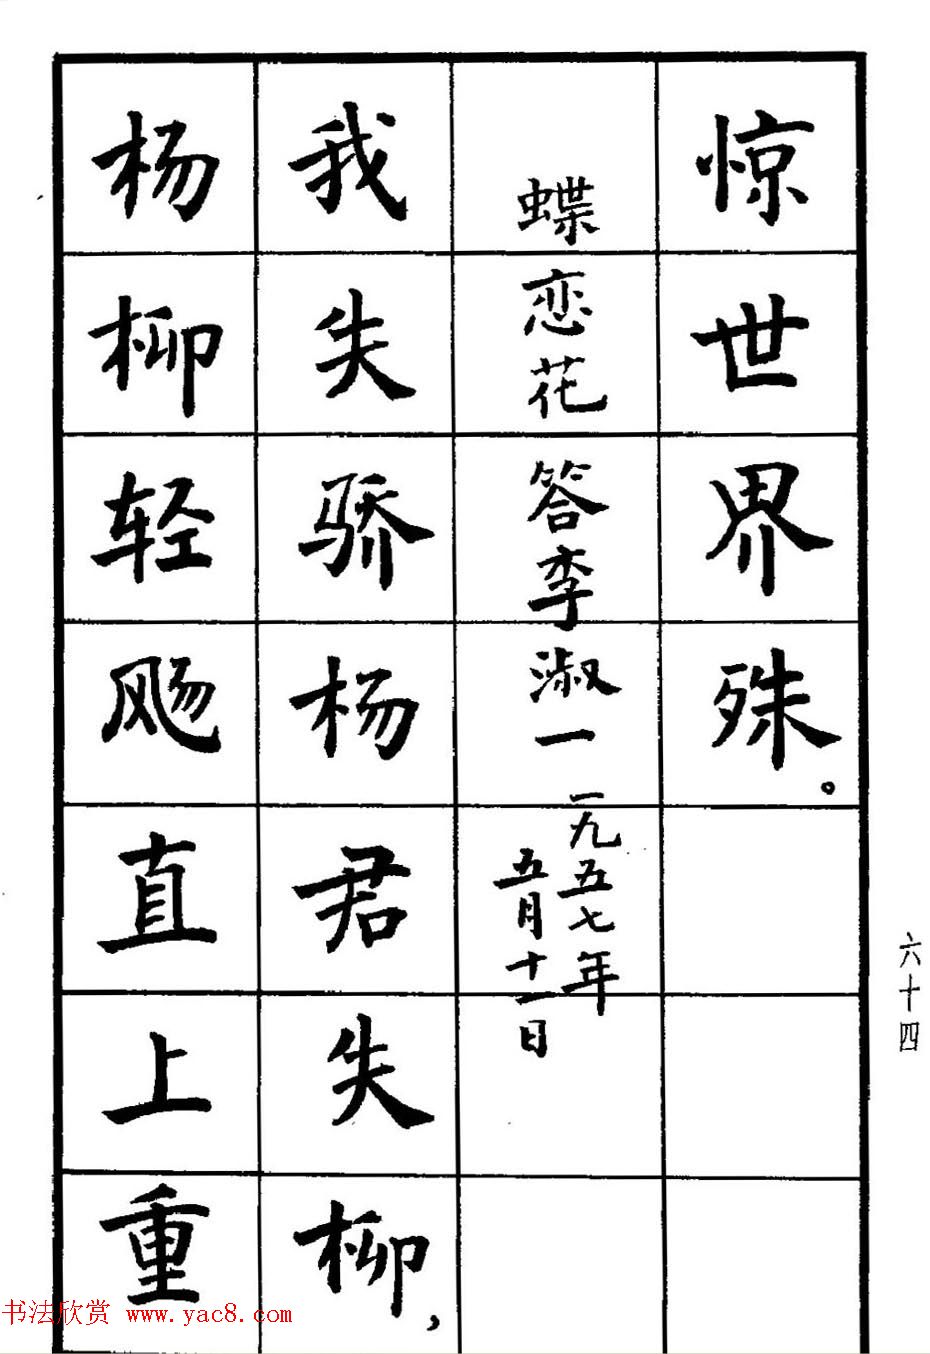 惊世界殊。
蝶恋花 答李淑一 一九五七年
五月十一日
我失骄杨君失柳，
杨柳轻飏直上重
六十四
书法欣赏 www.yac8.com